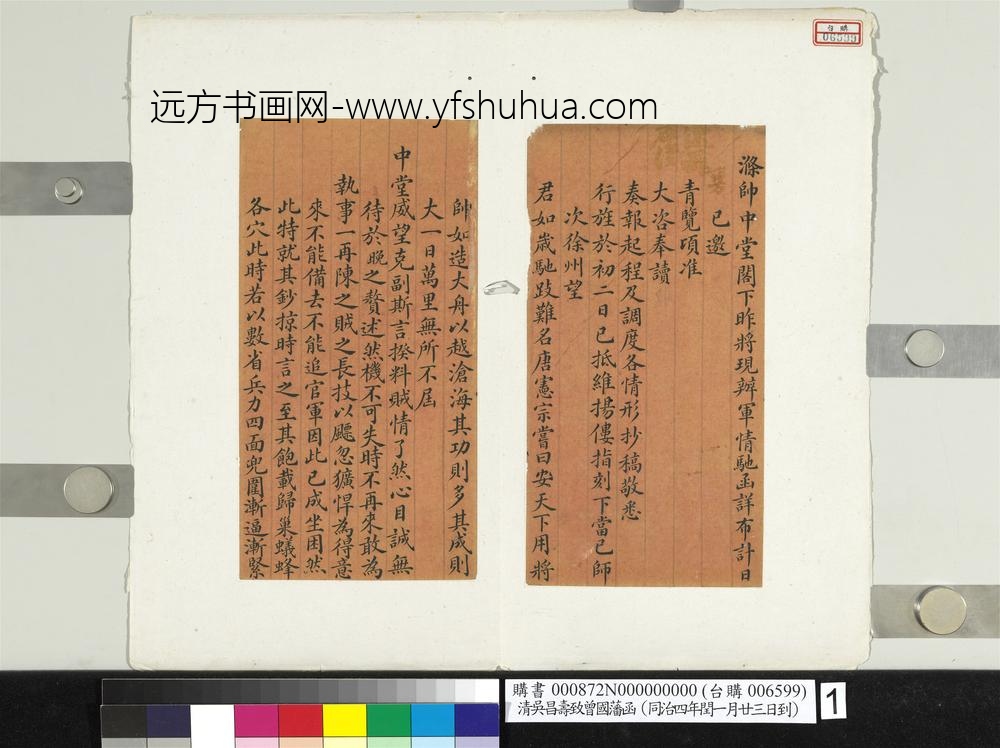 远方书画网-www.yfshuhua.com
台購
06599
滌帥中堂閣下昨將現辦軍情馳函詳布計日
已邀
青覽頃准
大咨奉讀
奏報起程及調度各情形抄稿敬悉
行旌於初二日已抵維揚僂指刻下當已師
次徐州望
君如歲馳跂難名唐憲宗嘗曰安天下用將
帥如造大舟以越滄海其功則多其成則
大一日萬里無所不屆
中堂威望克副斯言揆料賊情了然心目誠無
待於晚之贅述然機不可失時不再來敢為
執事一再陳之賊之長技以飈忽獷悍為得意
來不能備去不能追官軍因此已成坐困然
此特就其鈔掠時言之至其飽載歸巢蟻蜂
各穴此時若以數省兵力四面兜圍漸逼漸緊
購書 000872N000000000 (台購 006599)
清吳昌壽致曾國藩函 (同治四年閏一月廿三日到)
1